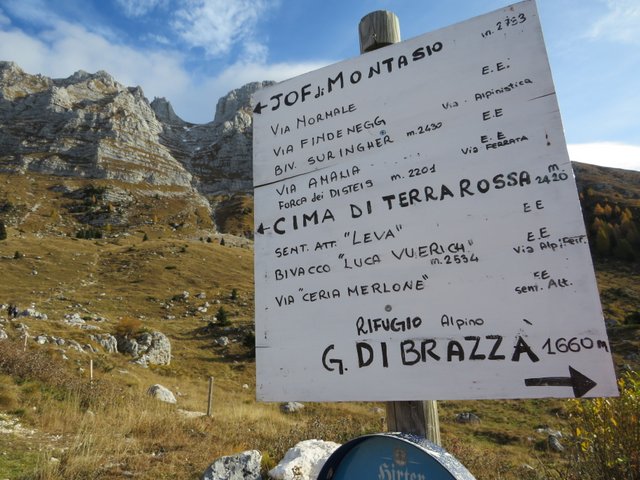 JOF di MONTASIO m. 2753
VIA NORMALE E.E.
VIA FINDENEGG Via Alpinistica
BIV. SURINGHER m.2430 E.E
VIA AMALIA E.E
FORCA dei DISTEIS m. 2201 Via FERRATA
CIMA DI TERRA ROSSA m. 2420
SENT. ATT. "LEVA" E E
BIVACCO "LUCA VUERICH" m.2534 E E
VIA "CERIA MERLONE" EE
sent. Alt.
RIFUGIO Alpino
G. DI BRAZZÀ 1660 m
Hirter